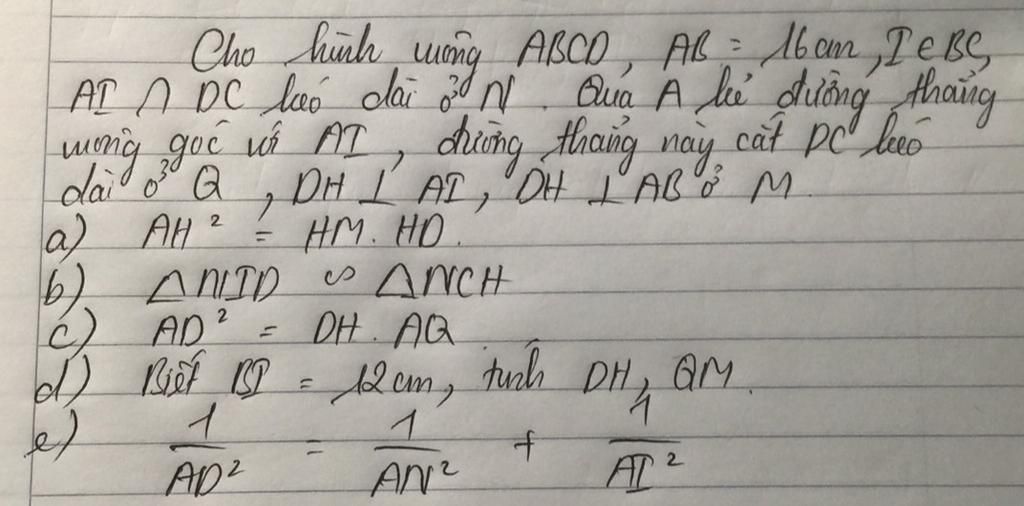 Cho hình vuông ABCD, AB = 16 cm, I ∈ BC,
AI ∩ DC kéo dài ở N. Qua A kẻ đường thẳng
vuông góc với AI, đường thẳng này cắt DC kéo
dài ở Q, DH ⊥ AI, DH ⊥ AB ở M.
a) AH² = HM. HD.
b) △NID ∽ △NCH
c) AD² = DH. AQ.
d) Biết BI = 12 cm, tính DH, QM.
e) 1/AD² = 1/AN² + 1/AI²